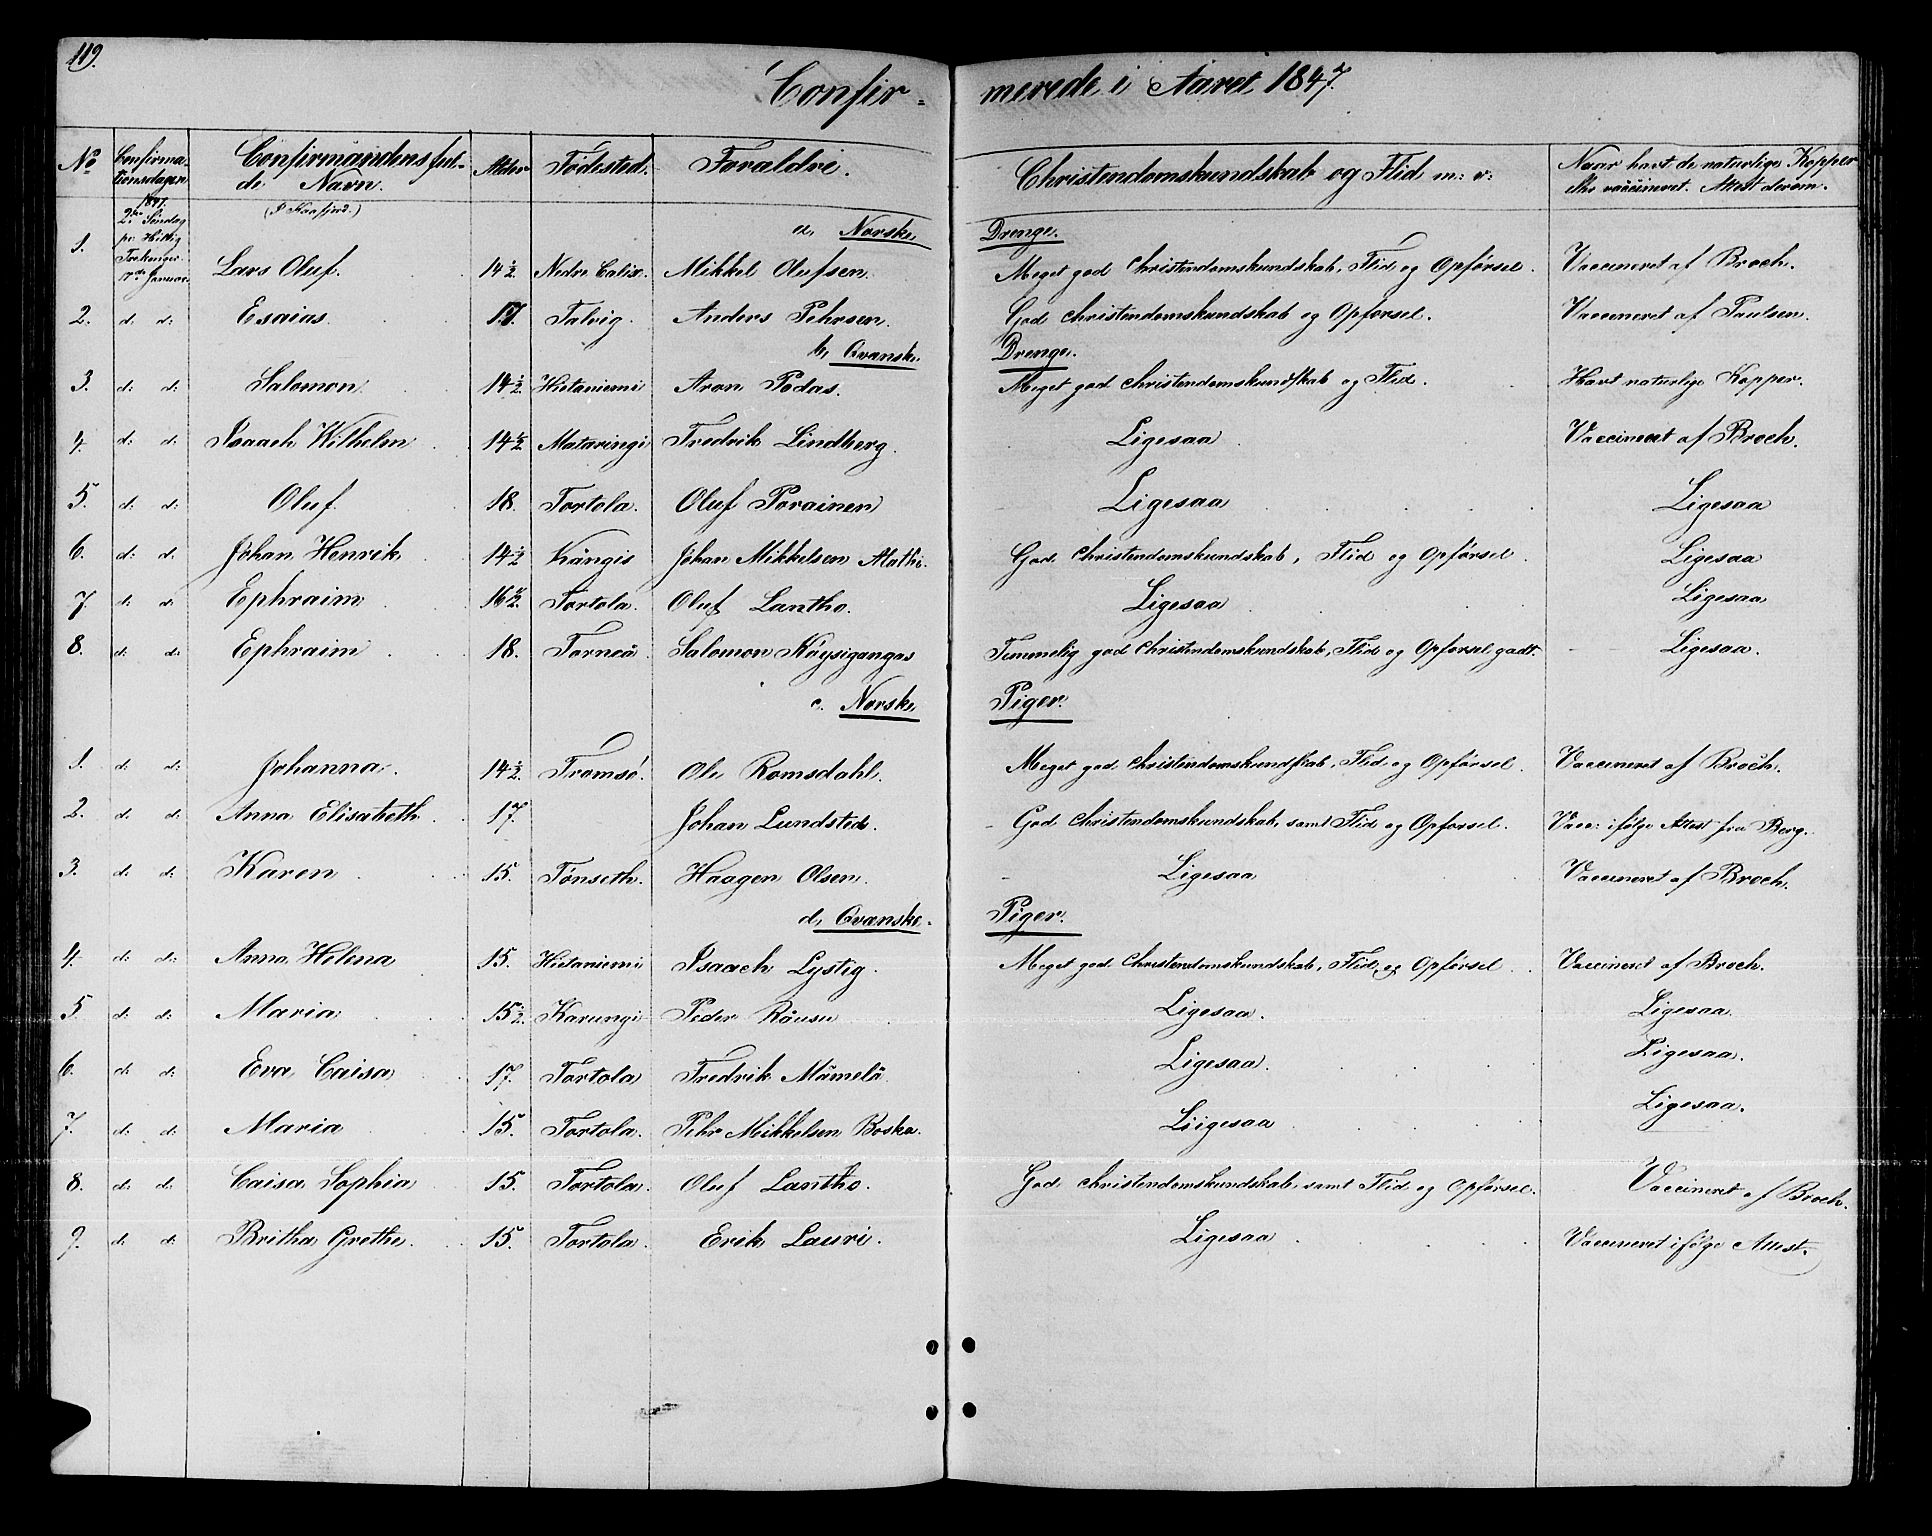 119.
Confir- merede i Aaret 1847.
No Confirma-tionsdagen Confirmandens ful-de Navn. Alder Fødested. Forældre. Christendomskundskab og Flid m: v: Naar havt de naturlige Kopper eller vaccineret. Attest derom.
(I Kaafjord.)
a, Norske Drenge.
1. 1847. 2den Søndag p: Hellig Trekonger 17de Januar Lars Oluf. 14½ Nedre Calix. Mikkel Olufsen. Meget god Christendomskundskab, Flid og Opførsel. Vaccineret af Broch.
2. d: d: Esaias. 17. Talvig. Anders Pehrsen. God Christendomskundskab og Opførsel. Vaccineret af Paulsen.
b, Qvænske Drenge.
3. d: d: Salomon. 14½ Hietaniemi Aron Podas. Meget god Christendomskundskab og Flid. Havt naturlige Kopper.
4. d: d: Isaach Wilhelm 14½ Mataringi Fredrik Lindberg. Ligesaa Vaccineret af Broch.
5. d: d: Oluf. 18. Tortola. Oluf Porainen Ligesaa Ligesaa
6. d: d: Johan Henrik 14½ Kängis Johan Mikkelsen Mathi. God Christendomskundskab, Flid og Opførsel. Ligesaa
7. d: d: Ephraim 16½ Tortola. Oluf Lantho. Ligesaa Ligesaa
8. d: d: Ephraim 18. Torneå Salomon Köysigangas Temmelig god Christendomskundskab, Flid og Opførsel godt. Ligesaa.
c. Norske Piger.
1. d: d: Johanna. 14½ Tromsø. Ole Romsdahl. Meget god Christendomskundskab, Flid og Opførsel. Vaccineret af Broch.
2. d: d: Anna Elisabeth. 17. Johan Lundsted. God Christendomskundskab, samt Flid og Opførsel. Vacc: ifølge Attest fra Berg.
3. d: d: Karen 15. Tønseth. Haagen Olsen. Ligesaa Vaccineret af Broch.
d, Qvænske. Piger.
4. d: d: Anna Helena 15. Hietaniemi Isaach Lystig. Meget god Christendomskundskab, Flid og Opførsel Vaccineret af Broch.
5 d: d: Maria 15½ Karungi Peder Räusu Ligesaa. Ligesaa.
6. d: d: Eva Caisa 17. Tortola Fredrik Mämelä. Ligesaa. Ligesaa.
7. d: d: Maria 15. Tortola. Pehr Mikkelsen Boska. Ligesaa Ligesaa.
8. d: d: Caisa Sophia 15. Tortola. Oluf Lantho. God Christendomskundskab, samt Flid og Opførsel. Vaccineret af Broch.
9. d: d: Britha Grethe. 15. Tortola. Erik Lauri. Ligesaa Vaccineret ifølge Attest.